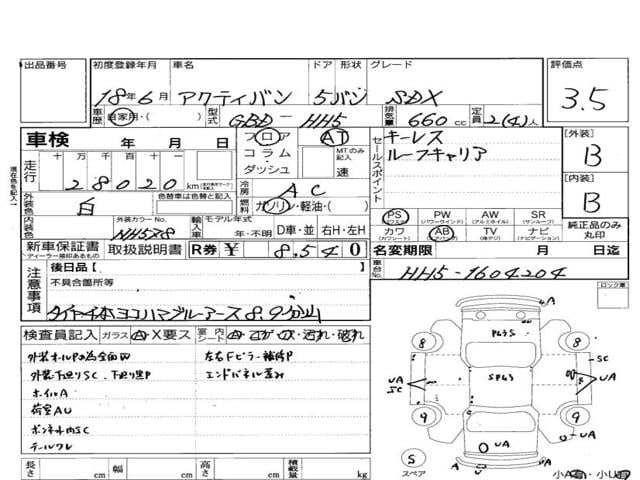 出品番号
初度登録年月
車名
ドア 形状
グレード
評価点
18年6月
アクティバン
5 バン
SDX
3.5
車歴
自家用・( )
型式
GBD-HH5
排気量
660 cc
定員
2(4)人
車検
年 月 日
フロア
コラム
ダッシュ
AT
MTのみ記入
速
セールスポイント
キーレス
ルーフキャリア
[外装]
B
[内装]
B
現在色を記入
走行
十 万 千 百 十
28020 km
冷房
AC
燃料
ガソリン・軽油・( )
外装色
白
色替車は色替と記入
外装カラーNo.
NH578
内装色
輸入車
モデル年式
年・不明
D車・並
右H・左H
PS PW AW SR
(パワステ) (パワーウインド) (アルミホイル) (サンルーフ)
カワ AB TV ナビ
(カワシート) (エアバッグ) (地デジ) (ナビゲーション)
純正品のみ丸印
新車保証書
ディーラー捺印あるもの
取扱説明書
R券 ¥ 8,540
名変期限
月 日迄
車台No.
HH5-1604204
注意事項
後日品[ ]
不具合箇所等
タイヤ4本ヨコハマブルーアース8.9分山
ロック車
検査員記入
ガラス A・X要ス
室内シート
汚れ・破れ
外装オールPの為全面凹
外装下廻りSC、下廻り黒P
ホイルA
荷室AU
ボンネット内SC
テールワレ
左右Fピラー補修P
エンドパネル歪み
長さ cm
幅 cm
高さ cm
積載量 kg
A
P43S
8
8
SC
UA
SC
SP43
8
UA
9
9
UA
UA
S
スペア
A
UA
小A有・小U有